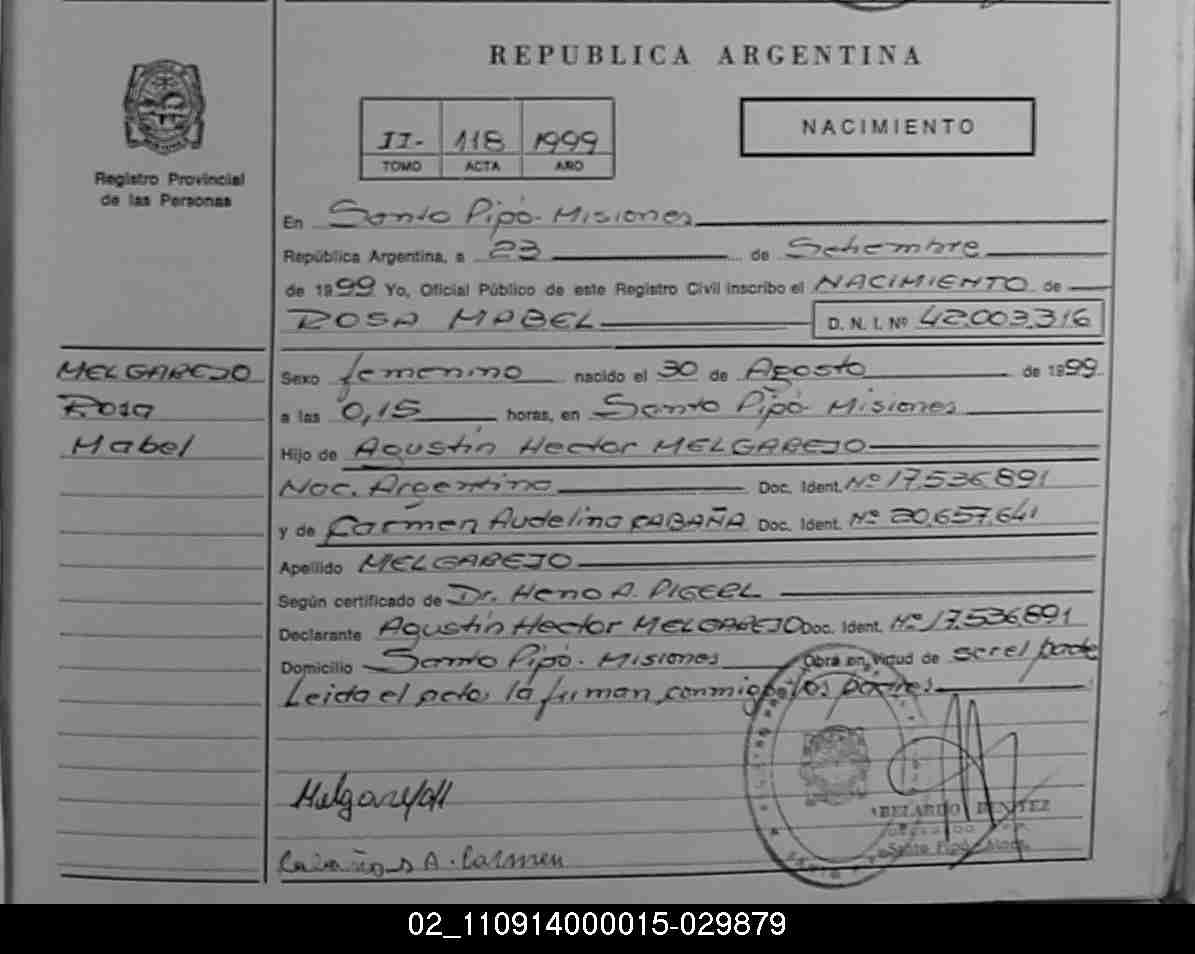 REPUBLICA ARGENTINA
Registro Provincial
de las Personas
II- 118 1999
TOMO ACTA AÑO
NACIMIENTO
En Santo Pipó - Misiones
República Argentina, a 23 de Setiembre
de 1999 Yo, Oficial Público de este Registro Civil inscribo el NACIMIENTO de
ROSA MABEL D. N. I. Nº 42.003.316
MELGAREJO
Rosa
Mabel
Sexo femenino nacido el 30 de Agosto de 1999
a las 0,15 horas, en Santo Pipó - Misiones
Hijo de Agustín Hector MELGAREJO
Nac. Argentina Doc. Ident. Nº 17.536.891
y de Carmen Audelina CABAÑA Doc. Ident. Nº 20.657.641
Apellido MELGAREJO
Según certificado de Dr. Heno A. PIGERL
Declarante Agustín Hector MELGAREJO Doc. Ident. Nº 17.536.891
Domicilio Santo Pipó - Misiones Obra en virtud de ser el padre
Leida el acta, la firman conmigo los padres
Melgarejo
ABELARDO BENITEZ
Santo Pipó
A. Carmen
02_110914000015-029879